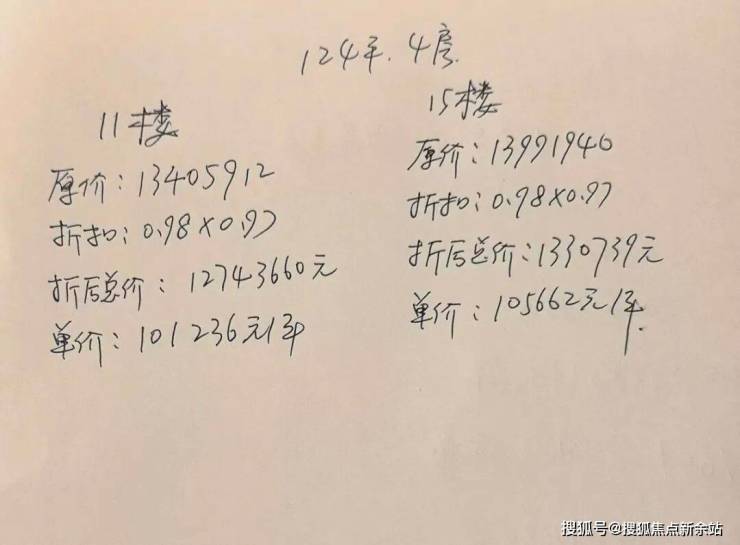 124平.4房.
11楼
原价:13405912
折扣:0.98×0.97
折后总价:12743660元
单价:101236元/平
15楼
原价:13991940
折扣:0.98×0.97
折后总价:1330739元
单价:105662元/平.
搜狐号@搜狐焦点新余站